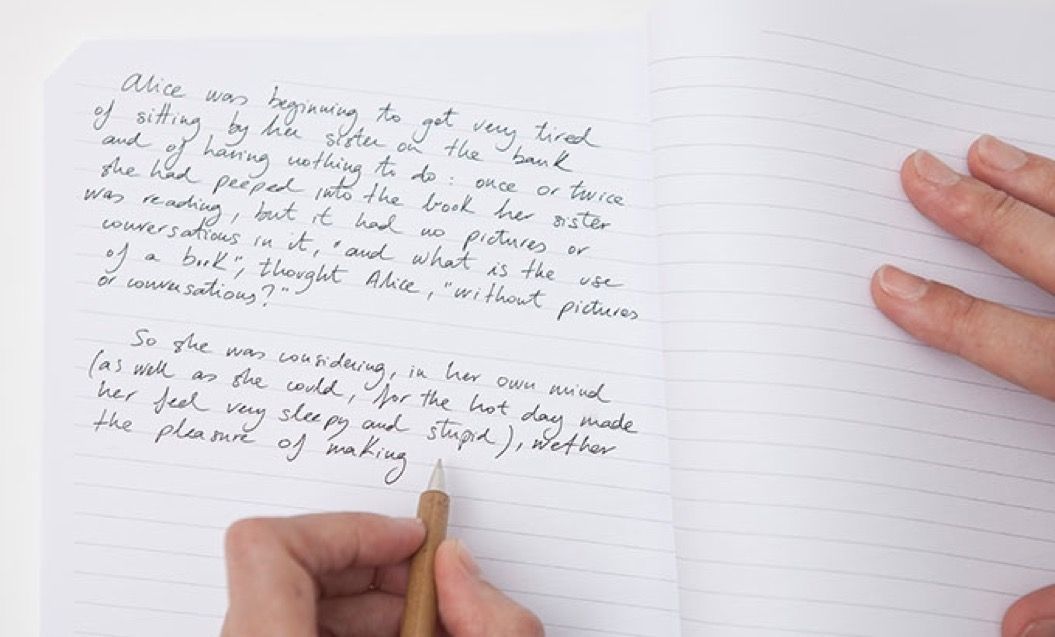 Alice was beginning to get very tired
of sitting by her sister on the bank
and of having nothing to do : once or twice
she had peeped into the book her sister
was reading, but it had no pictures or
conversations in it, "and what is the use
of a book", thought Alice, "without pictures
or conversations?"
So she was considering, in her own mind
(as well as she could, for the hot day made
her feel very sleepy and stupid), wether
the pleasure of making